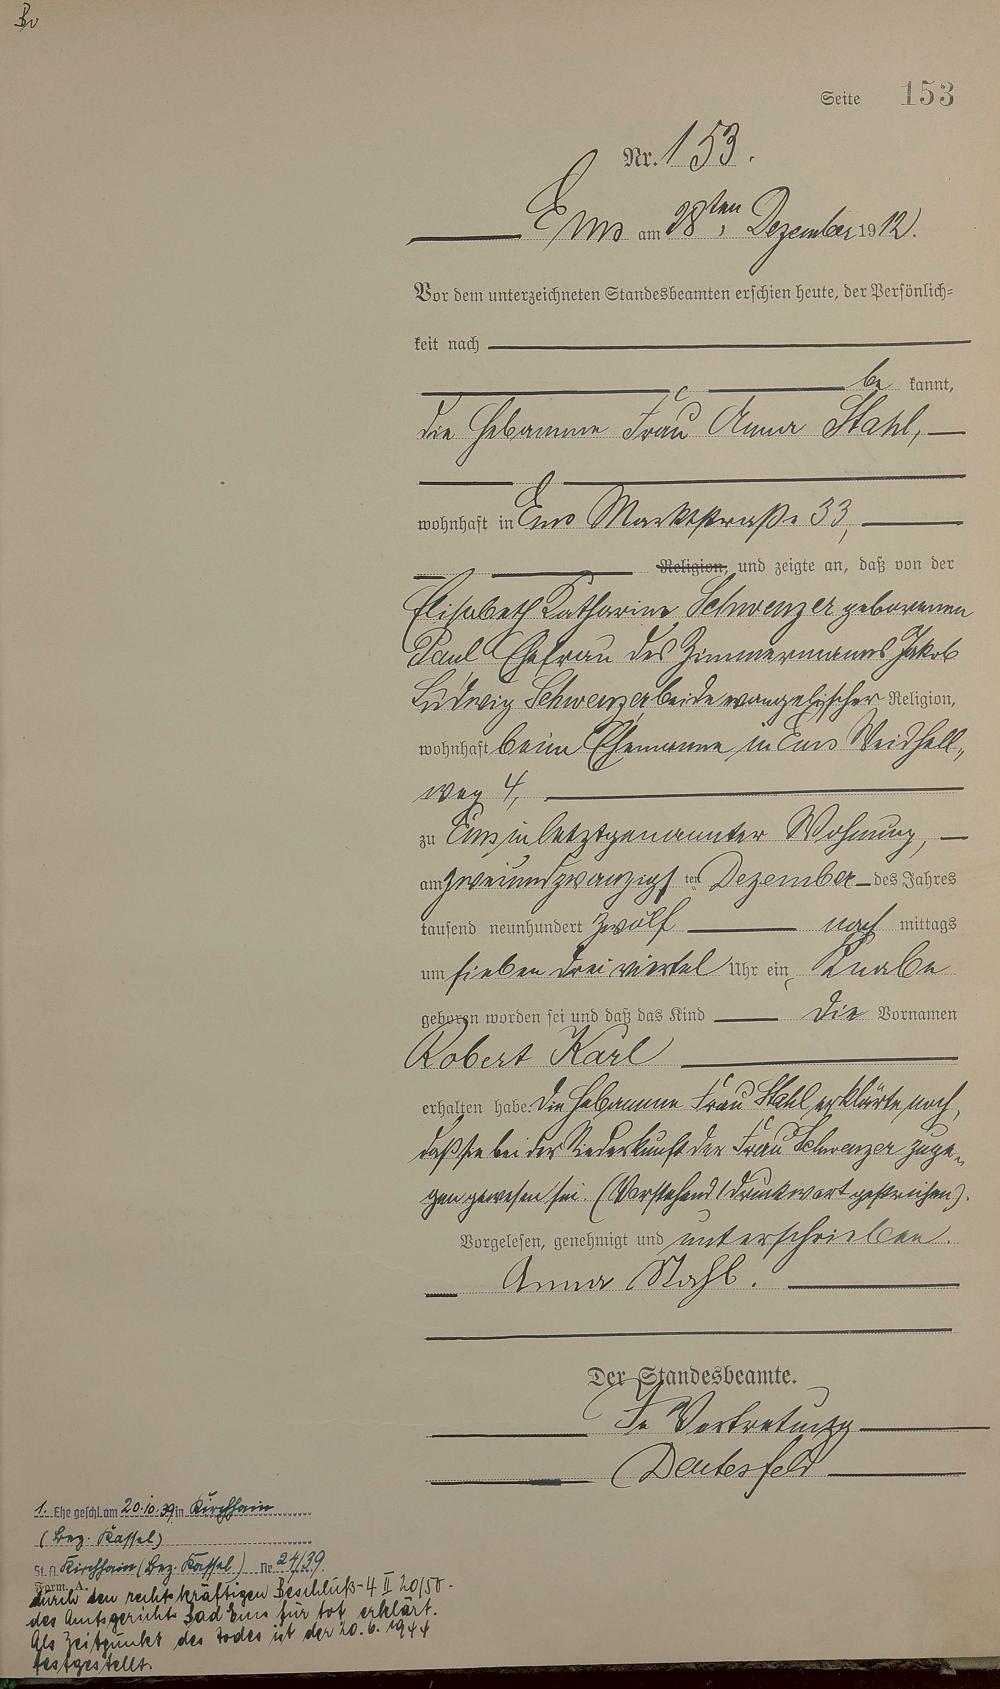 Bv
Seite 153
Nr. 153.
Ems am 28ten, Dezember 1912.
Vor dem unterzeichneten Standesbeamten erschien heute, der Persönlich=
keit nach
be kannt,
die Hebamme Frau Anna Stahl,
wohnhaft in Ems Marktstraße 33,
Religion, und zeigte an, daß von der
Elisabeth Katharine Schwenzer geborenen
Paul Ehefrau des Zimmermanns Jakob
Ludwig Schwenzer beide evangelischer Religion,
wohnhaft beim Ehemanne in Ems Weidhell,,
weg 4,
zu Ems in letztgenannter Wohnung,
am zweiundzwanzigs ten Dezember des Jahres
tausend neunhundert zwölf nach mittags
um sieben drei viertel Uhr ein Knabe
geboren worden sei und daß das Kind die Vornamen
Robert Karl
erhalten habe. Die Hebamme Frau Stahl erklärte noch,
daß sie bei der Niederkunft der Frau Schwenzer zuge„
gen gewesen sei. (Vorstehend 1 Druckwort gestrichen).
Vorgelesen, genehmigt und unterschrieben.
Anna Stahl.
Der Standesbeamte.
In Vertretung
1. Ehe geschl. am 20.10.39 in Kirchhain
(Bez. Kassel)
St. A. Kirchhain (Bez. Kassel) Nr 24/39.
Form. A.
durch den rechtskräftigen Beschluß - 4 II 20/50 -
des Amtsgerichts Bad Ems für tot erklärt.
Als Zeitpunkt des Todes ist der 20.6.1944
festgestellt.